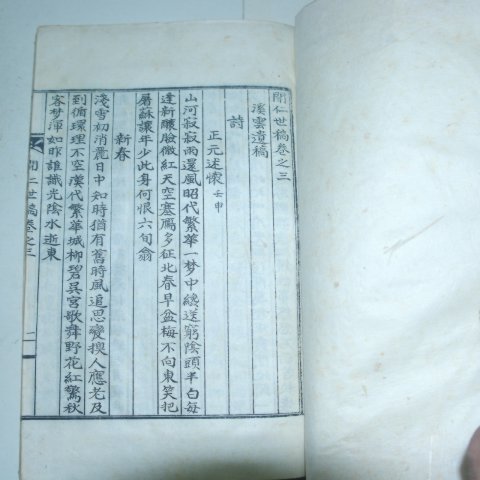 聞仁世稿卷之三
溪雲遺稿
詩
正元述懷壬申
山河寂寂雨還風昭代繁華一梦中纔送窮陰頭半白每
逢新釀臉微紅天空塞鴈多征北春早盆梅不向東笑把
屠蘇讓年少此身何恨六旬翁
新春
淺雪初消麗日中知時猶有舊時風追思變換人應老及
到循環理不空漢代繁華城柳碧吳宮歌舞野花紅驚秋
客梦渾如昨誰識光陰水逝東
聞仁世稿卷之三
一